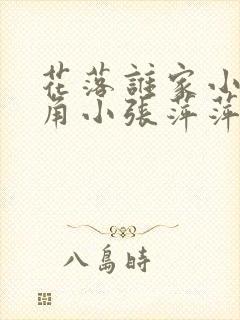 花落誰家小
角小張萍萍
八島時